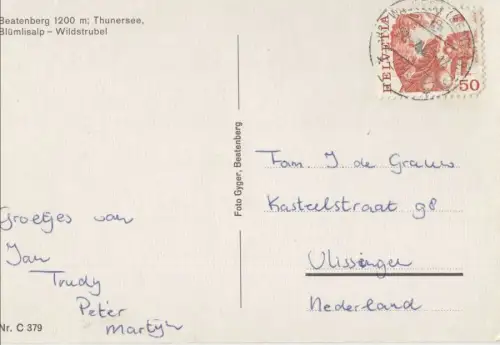 Beatenberg 1200 m; Thunersee,
Blümlisalp – Wildstrubel
HELVETIA
50
Foto Gyger, Beatenberg
Fam. J de Grauw
Kasteelstraat 98
Vlissingen
Nederland
Groetjes van
Jan
Trudy
Peter
Martijn
Nr. C 379